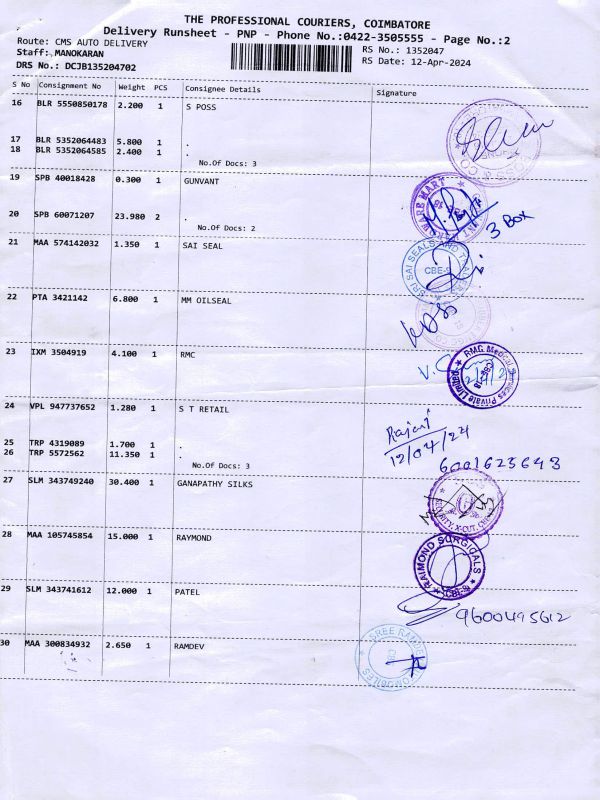 THE PROFESSIONAL COURIERS, COIMBATORE
Delivery Runsheet - PNP - Phone No.:0422-3505555 - Page No.:2
Route: CMS AUTO DELIVERY
RS No.: 1352047
Staff: MANOKARAN
RS Date: 12-Apr-2024
DRS No.: DCJB135204702
S No Consignment No Weight PCS Consignee Details Signature
16 BLR 5550850178 2.200 1 S POSS
17 BLR 5352064483 5.800 1 .
18 BLR 5352064585 2.400 1 .
No.Of Docs: 3
19 SPB 40018428 0.300 1 GUNVANT
20 SPB 60071207 23.980 2 .
No.Of Docs: 2
3 BOX
21 MAA 574142032 1.350 1 SAI SEAL
SRI SAI SEALS AND
CBE-9
22 PTA 3421142 6.800 1 MM OILSEAL
23 IXM 3504919 4.100 1 RMC
RMG Medical Services Private Limited
24 VPL 947737652 1.280 1 S T RETAIL
Rajari
12/04/24
25 TRP 4319089 1.700 1 .
26 TRP 5572562 11.350 1 .
No.Of Docs: 3
6001625643
27 SLM 343749240 30.400 1 GANAPATHY SILKS
SECURITY, X-CUT,
28 MAA 105745854 15.000 1 RAYMOND
RAIMOND SURGICALS
CBE-9
29 SLM 343741612 12.000 1 PATEL
9600495612
30 MAA 300834932 2.650 1 RAMDEV